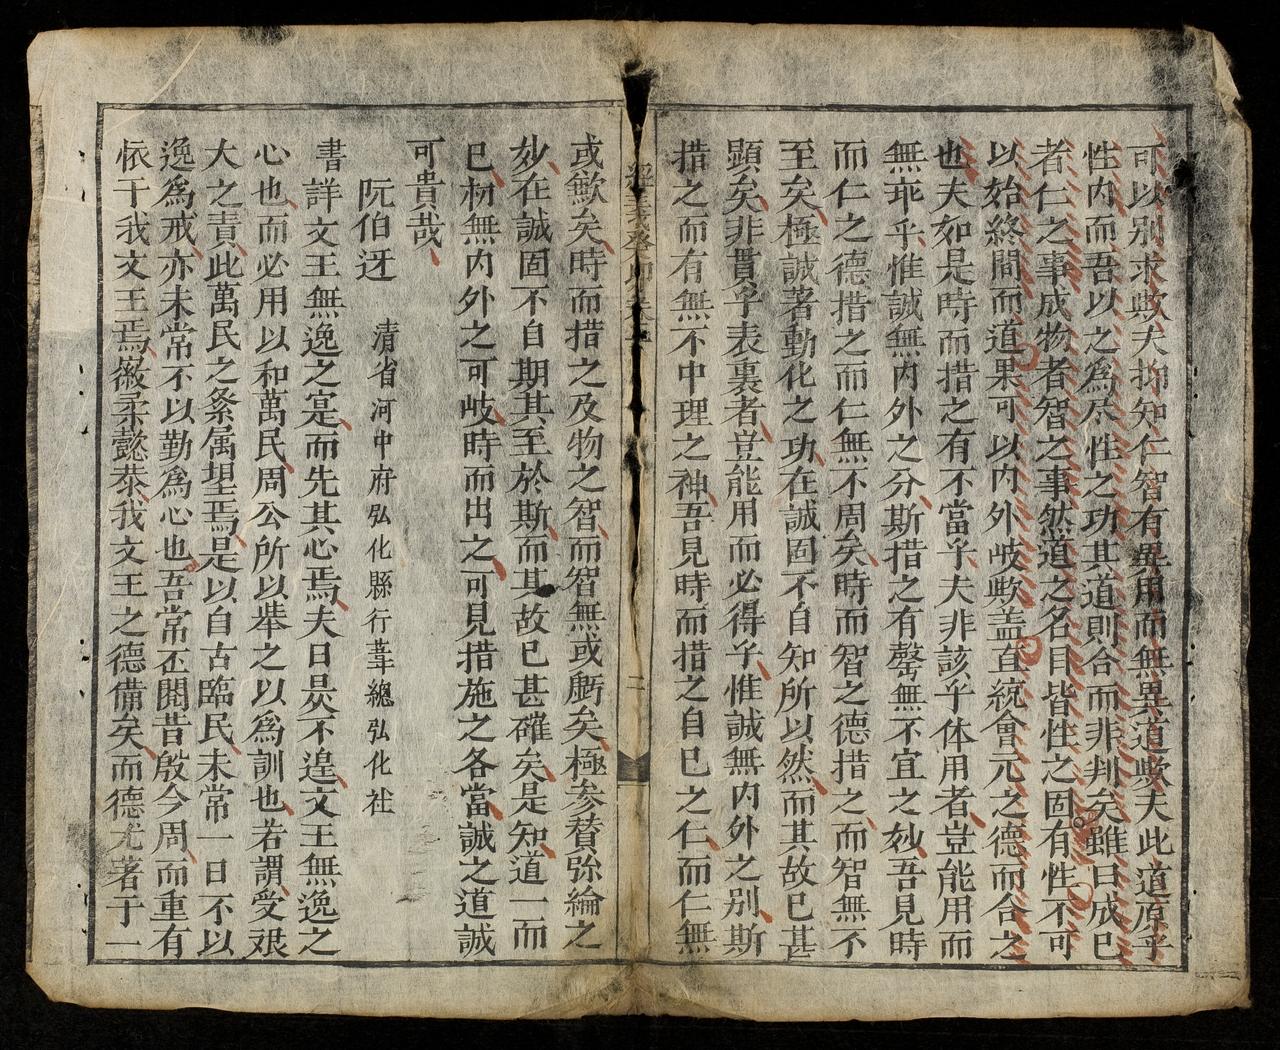 可以别求歟夫抑知仁智有異用而無異道歟夫此道原乎
性内而吾以之爲尽性之功其道則合而非判矣雖曰成已
者仁之事成物者智之事然道之名目皆性之固有性不可
以始終間而道果可以内外岐歟盖直統會元之德而合之
也夫如是時而措之有不當乎夫非該乎体用者豈能用而
無乖乎惟誠無内外之分斯措之有罄無不宜之妙吾見時
而仁之德措之而仁無不周矣時而智之德措之而智無不
至矣極誠著動化之功在誠固不自知所以然而其故已甚
顕矣非貫乎表裏者豈能用而必得乎惟誠無内外之别斯
措之而有無不中理之神吾見時而措之自已之仁而仁無
二
或歉矣時而措之及物之智而智無或虧矣極参賛弥綸之
妙在誠固不自期其至於斯而其故已甚確矣是知道一而
已初無内外之可岐時而出之可見措施之各當誠之道誠
可貴哉
阮伯迓 清省河中府弘化縣行葦總弘化社
書詳文王無逸之寔而先其心焉夫日昃不遑文王無逸之
心也而必用以和萬民周公所以举之以爲訓也若謂受艰
大之責此萬民之条属望焉是以自古臨民未常一日不以
逸爲戒亦未常不以勤爲心也吾常丕閱昔殷今周而重有
依于我文王焉徽柔懿恭我文王之德備矣而德尤著于一